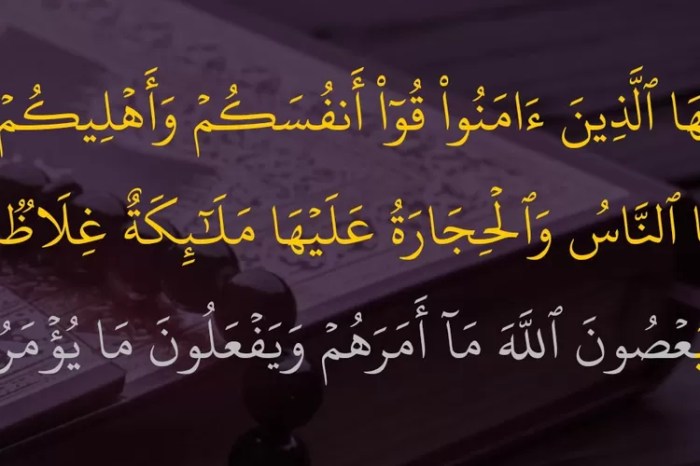 هَا ٱلَّذِينَ ءَامَنُوا۟ قُوٓا۟ أَنفُسَكُمۡ وَأَهۡلِيكُمۡ
ا ٱلنَّاسُ وَٱلۡحِجَارَةُ عَلَيۡهَا مَلَـٰٓئِكَةٌ غِلَاظٌ
يَعۡصُونَ ٱللَّهَ مَآ أَمَرَهُمۡ وَيَفۡعَلُونَ مَا يُؤۡمَرُ